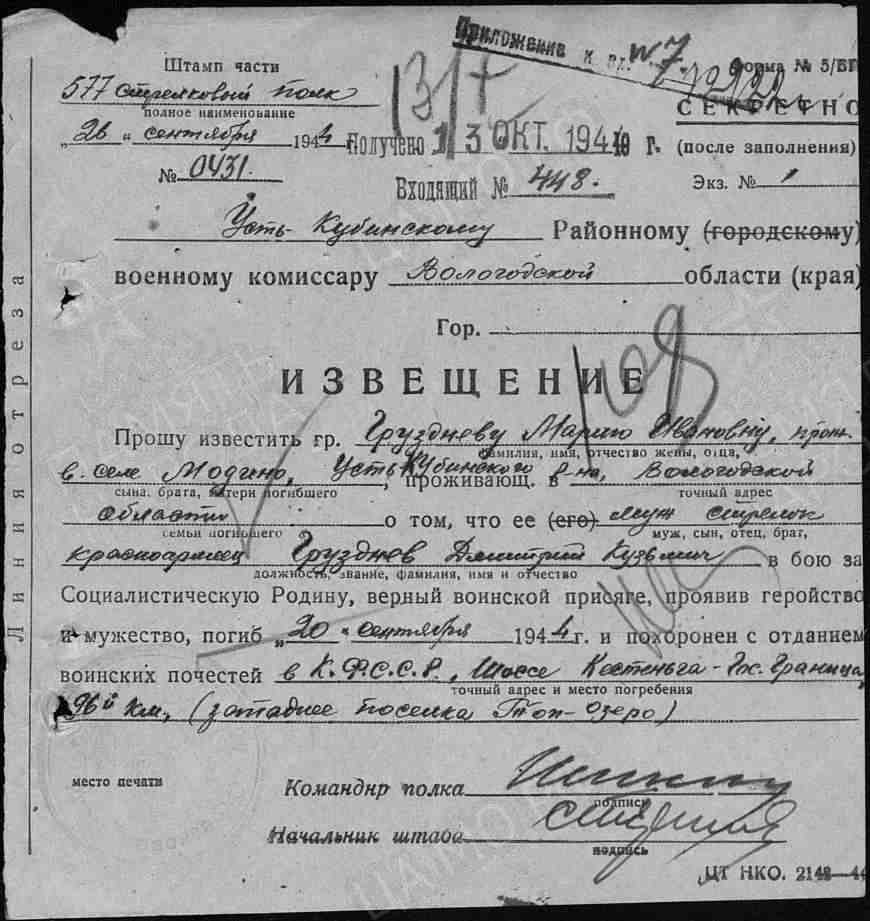 Приложение к вх. № 7
Штамп части
Форма № 5/БП
577 стрелковый полк
полное наименование
СЕКРЕТНО
„26“ сентября 1944
Получено 13 ОКТ. 1944 г.
(после заполнения)
№ 0431.
Входящий № 448.
Экз. № 1
Усть-Кубинскому Районному (городскому)
военному комиссару Вологодской области (края)
Гор.
ИЗВЕЩЕНИЕ
Прошу известить гр. Грузднёву Марию Ивановну, прож.
фамилия, имя, отчество жены, отца,
в селе Модино, Усть Кубинского, проживающ. в р-на, Вологодской
сына, брата, матери погибшего
точный адрес
области о том, что ее (его) муж стрелок
семьи погибшего
муж, сын, отец, брат,
красноармеец Грузднев Дмитрий Кузьмич в бою за
должность, звание, фамилия, имя и отчество
Социалистическую Родину, верный воинской присяге, проявив геройство
и мужество, погиб „20“ сентября 1944 г. и похоронен с отданием
воинских почестей в К.Ф.С.С.Р., Шоссе Кестеньга-Гос. Граница,
точный адрес и место погребения
96й км, (западнее поселка Топ-Озеро)
место печати
Командир полка
подпись
Начальник штаба
подпись
ЦТ НКО. 2148—44
Линия отреза